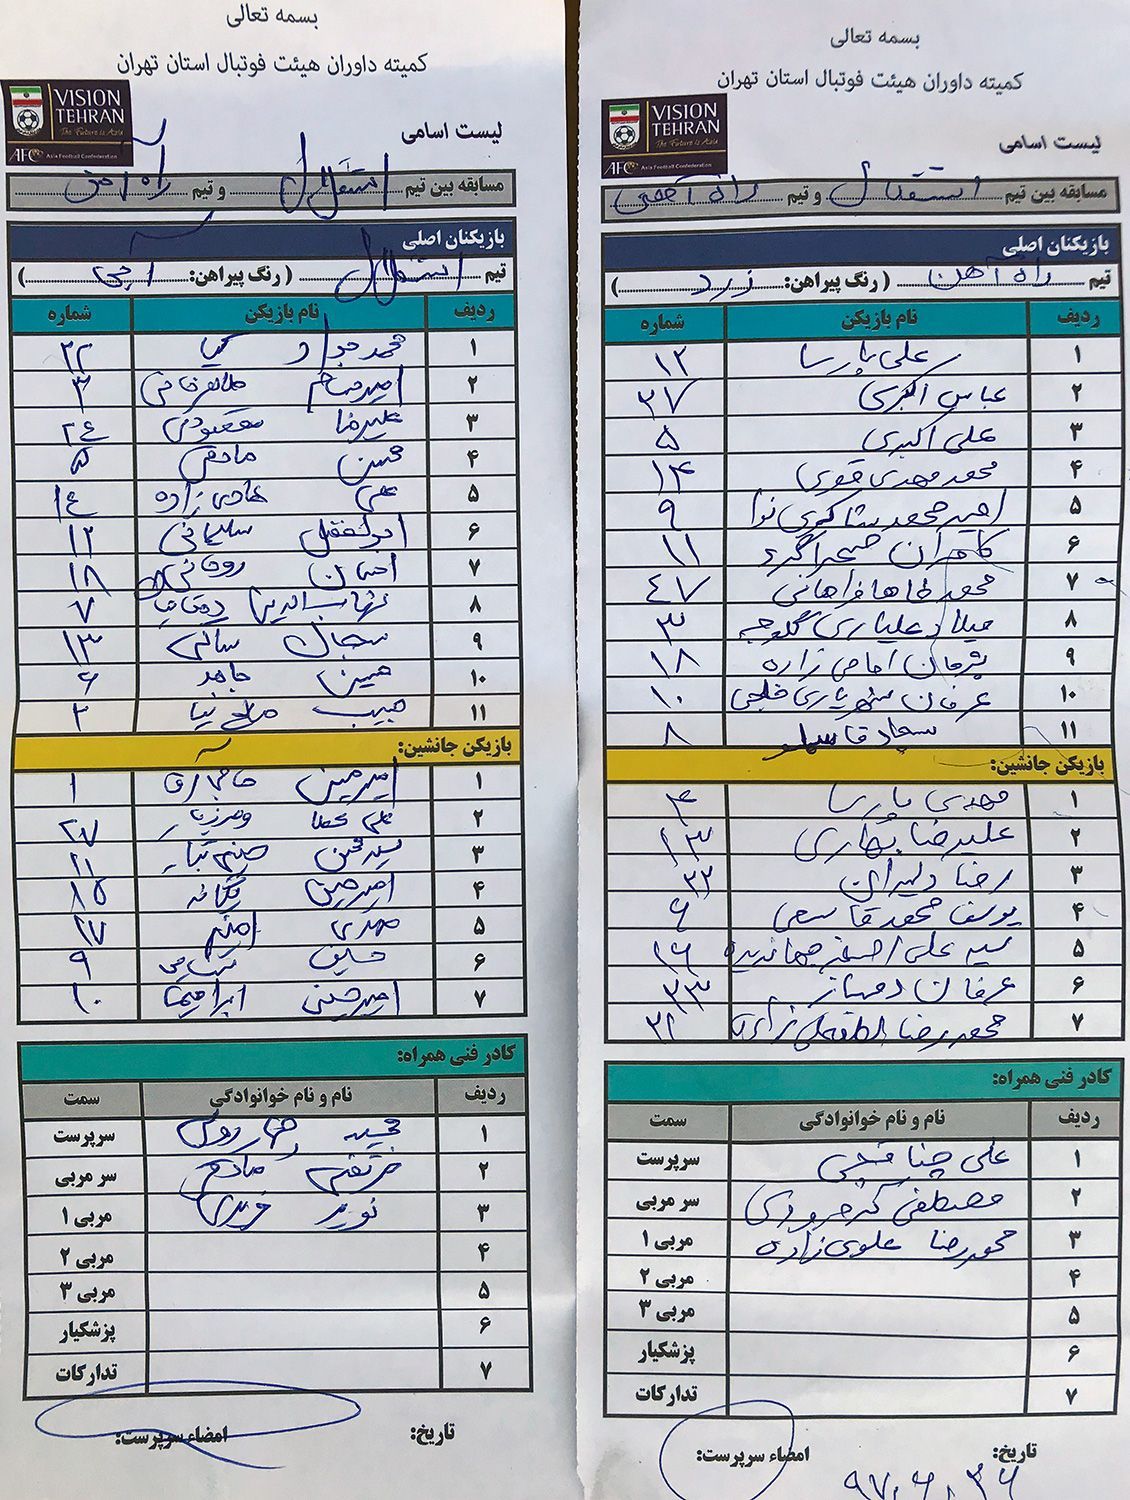 بسمه تعالی
کمیته داوران هیئت فوتبال استان تهران
VISION
TEHRAN
The Future is Asia
AFC Asia Football Confederation
لیست اسامی
مسابقه بین تیم استقلال و تیم راه آهن
بازیکنان اصلی
تیم استقلال ( رنگ پیراهن: آبی )
ردیف نام بازیکن شماره
۱ محمد جواد کیا ۲۲
۲ امیرحسام طاهرخانی ۳
۳ علیرضا مقصودی ۲۴
۴ محسن صادقی ۵
۵ علی هادی زاده ۱۴
۶ ابوالفضل سلیمانی ۱۲
۷ احسان روحانی ۱۸
۸ شهاب الدین ۷
۹ سبحان ۱۳
۱۰ مبین ۶
۱۱ حبیب صالح نیا ۲
بازیکن جانشین:
۱ امیرمبین حاجی آقا ۱
۲ ۲۷
۳ سید محسن ۲۱
۴ امیرحسین یگانه ۱۵
۵ مهدی ۱۷
۶ حسین ۹
۷ امیرحسین ۱۰
کادر فنی همراه:
ردیف نام و نام خوانوادگی سمت
۱ سرپرست
۲ سر مربی
۳ نوید فریدی مربی ۱
۴ مربی ۲
۵ مربی ۳
۶ پزشکیار
۷ تدارکات
تاریخ: امضاء سرپرست:
بسمه تعالی
کمیته داوران هیئت فوتبال استان تهران
VISION
TEHRAN
The Future is Asia
AFC Asia Football Confederation
لیست اسامی
مسابقه بین تیم استقلال و تیم راه آهن
بازیکنان اصلی
تیم راه آهن ( رنگ پیراهن: زرد )
ردیف نام بازیکن شماره
۱ علی پارسا ۱۲
۲ عباس اکبری ۳۷
۳ علی اکبری ۵
۴ محمد مهدی قوی ۱۴
۵ امیر محمد شاکری نوا ۹
۶ کامران صحراگرد ۱۱
۷ محمد طاها فراهانی ۴۷
۸ میلاد علیاری گلوجه ۳
۹ پژمان امامی زاده ۱۸
۱۰ عرفان شهریاری خلجی ۱۰
۱۱ سجاد ۸
بازیکن جانشین:
۱ مهدی پارسا ۴
۲ علیرضا بهاری ۱۳
۳ رضا دلیران ۳۳
۴ یوسف محمد قاسمی ۶
۵ سید علی اصغر جهاندیده ۱۶
۶ عرفان دمباز ۲۳
۷ محمدرضا لطفعلی زاده ۲۱
کادر فنی همراه:
ردیف نام و نام خوانوادگی سمت
۱ علی سرپرست
۲ مصطفی سر مربی
۳ محمدرضا علوی زاده مربی ۱
۴ مربی ۲
۵ مربی ۳
۶ پزشکیار
۷ تدارکات
تاریخ: امضاء سرپرست:
۹۷،۶،۲۶